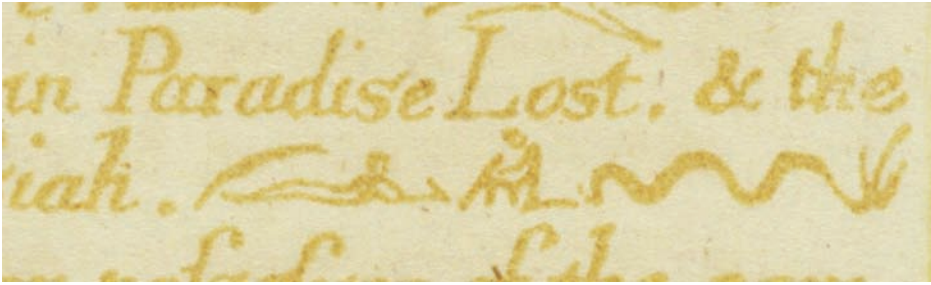 in Paradise Lost. & the
iah.
of the